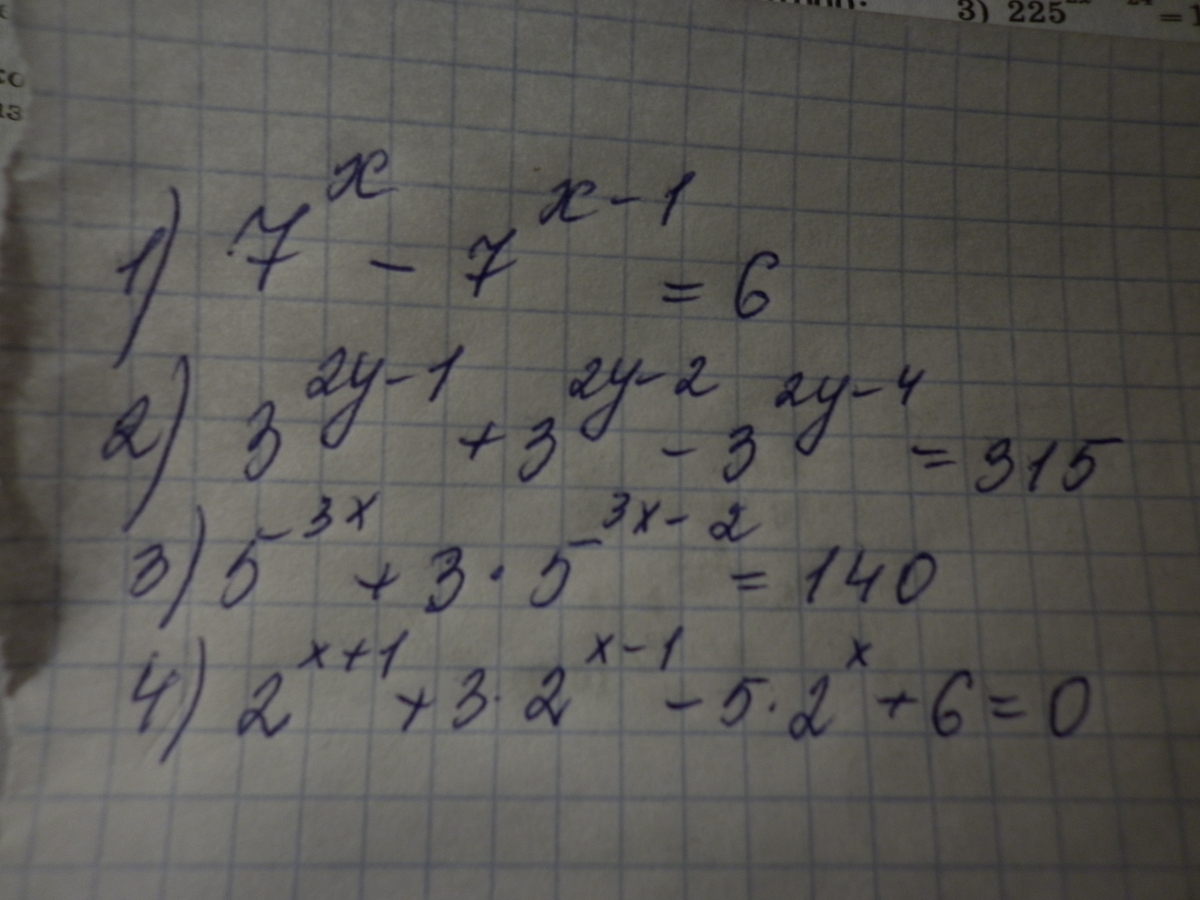 3) 225
= 1
1) 7^x - 7^{x-1} = 6
2) 3^{2y-1} + 3^{2y-2} - 3^{2y-4} = 315
3) 5^{3x} + 3 · 5^{3x-2} = 140
4) 2^{x+1} + 3 · 2^{x-1} - 5 · 2^x + 6 = 0